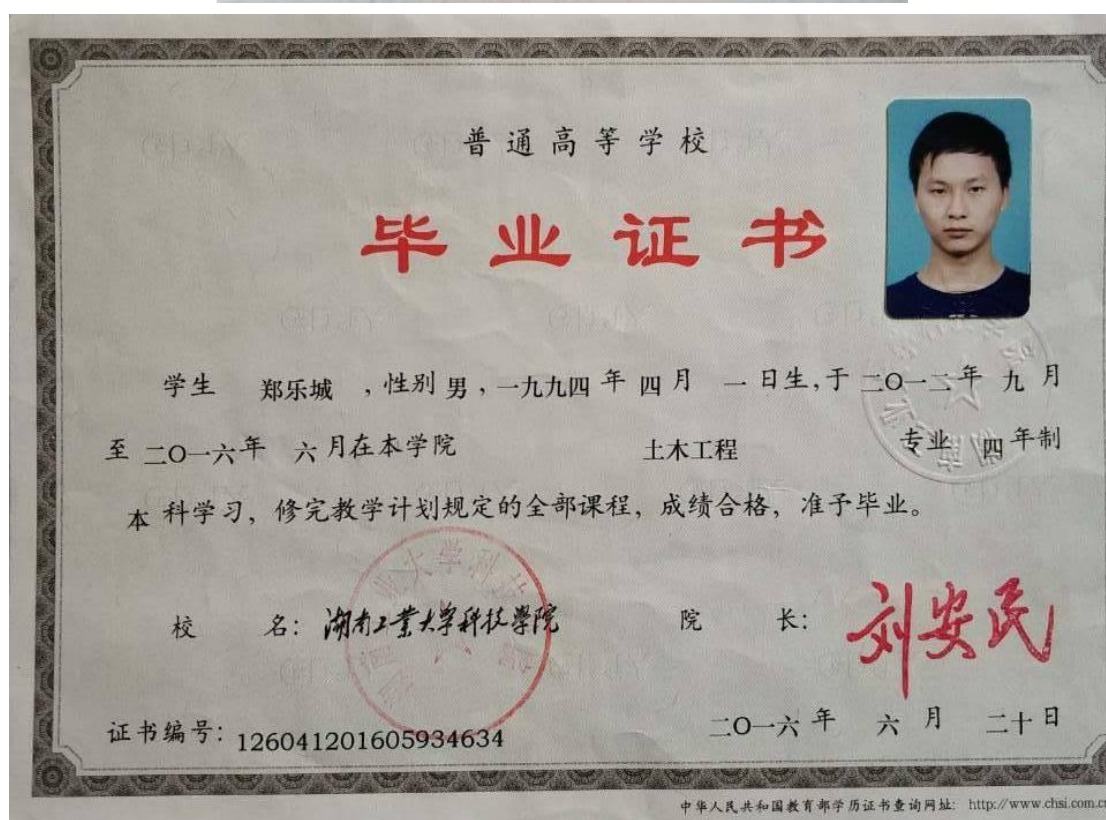 普通高等学校
毕业证书
学生 郑乐城 ,性别 男,一九九四 年 四 月 一 日生,于 二〇一二 年 九 月
至 二〇一六 年 六 月在本学院 土木工程 专业 四 年制
本 科学习，修完教学计划规定的全部课程，成绩合格，准予毕业。
校 名: 湖南工业大学科技学院 院 长: 刘安民
证书编号: 126041201605934634 二〇一六 年 六 月 二十 日
中华人民共和国教育部学历证书查询网址: http://www.chsi.com.cn